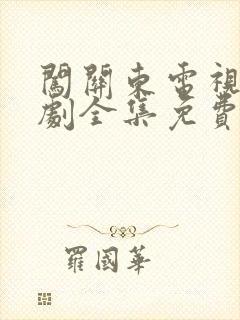 闖關東電視
劇全集免費
羅國華